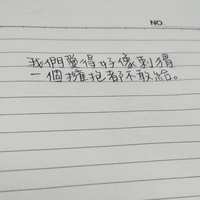 NO.
我們覺得好像剩得
一個擁抱都不敢給。